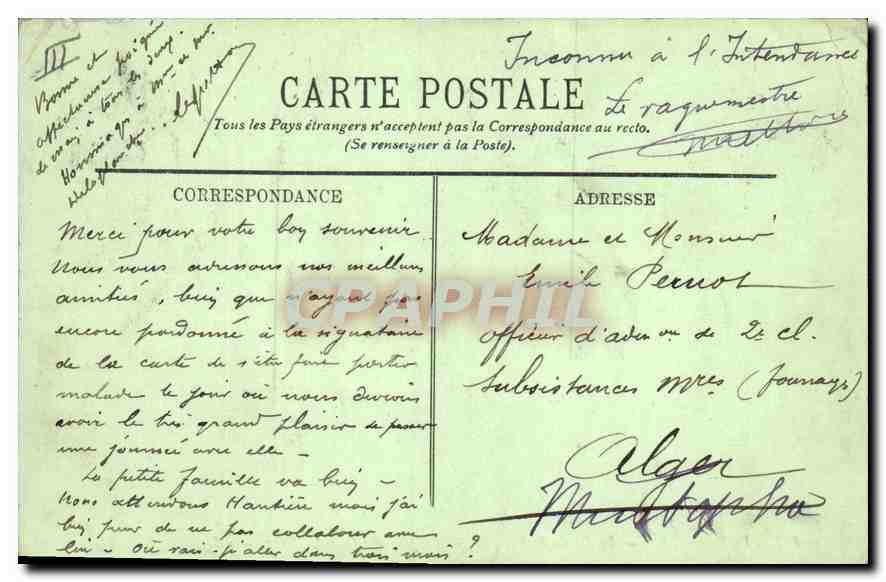 III
Bonne et
affectueuse poignée
de main à tous les deux.
Hommages à Mme et Mr
Inconnu à l'Intendance
Le vaguemestre
CARTE POSTALE
Tous les Pays étrangers n'acceptent pas la Correspondance au recto.
(Se renseigner à la Poste).
CORRESPONDANCE
Merci pour votre bon souvenir.
Nous vous adressons nos meilleurs
amitiés, bien que n'ayant pas
encore pardonné à la signataire
de la carte de s'être faite porter
malade le jour où nous devions
avoir le très grand plaisir de passer
une journée avec elle.
La petite famille va bien –
Nous attendons mais j'ai
bien peur de ne pas collaborer avec
lui – Où vais-je aller dans trois mois ?
ADRESSE
Madame et Monsieur
Emile Pernot
officier d'admon de 2e cl.
Subsistances Mres (fourrages)
Alger
Mustapha
CPAPHIL